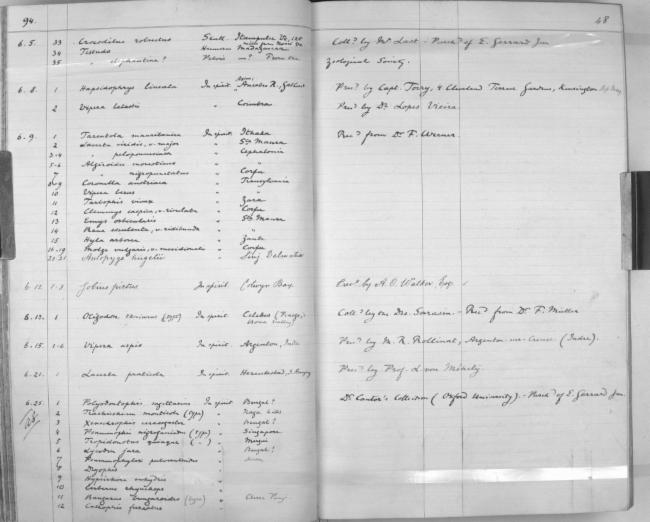 94. 48
6.5. 33 Crocodilus robustus Skull.
34 Testudo Humerus Madagascar
35 " elephantina? Pelvis
Coll.d by Mr Last - Purch.d of E. Gerrard Jun.
Zoological Society.
6.8. 1 Hapsidophrys lineata In spirit
Pres.d by Capt. Torry, 4 Cleveland Terrace Gardens, Kensington
2 Vipera latastii " Coimbra
Pres.d by Dr Lopes Vieira.
6.9. 1 Tarentola mauritanica In spirit Ithaka
Rec.d from Dr F. Werner.
2 Lacerta viridis, v. major " Sta Maura
3-4 " peloponnesiaca " Cephalonia
5-6 Algiroides moreoticus " "
7 " nigropunctatus " Corfu
8-9 Coronella austriaca " Transylvania
10 Vipera berus " "
11 Tarbophis vivax " Zara
12 Clemmys caspica, v. rivulata " Corfu
13 Emys orbicularis " Sta Maura
14 Rana esculenta, v. ridibunda " "
15 Hyla arborea " Zante
16-19 Molge vulgaris, v. meridionalis " Corfu
20-21 Aulopyge hugelii " Sinj, Dalmatia
6.12. 1-3 Gobius pictus In spirit Colwyn Bay
Pres.d by A. O. Walker, Esq.
6.13. 1 Oligodon (type) In spirit Celebes
Coll.d by the Drs. Sarasin - Rec.d from Dr F. Müller
6.15. 1-6 Vipera aspis In spirit Argenton, Indre
Pres.d by M. R. Rollinat, Argenton-sur-Creuse (Indre).
6.21. 1 Lacerta praticola In spirit
Pres.d by Prof. L. von Méhely
6.25. 1 Polyodontophis sagittarius In spirit Bengal?
Dr Cantor's Collection (Oxford University). - Purch.d of E. Gerrard Jun.
2 Trachischium monticola (type) " Naga hills
3 Xenochrophis cerasogaster " Bengal?
4 (type) " Singapore
5 Tropidonotus " Mergui
6 Lycodon jara " Bengal?
7 Psammophylax pulverulentus "
8 Dryophis "
9 Hypsirhina enhydris "
10 Cerberus rhynchops "
11 Bungarus bungaroides (type) "
12 Callophis "